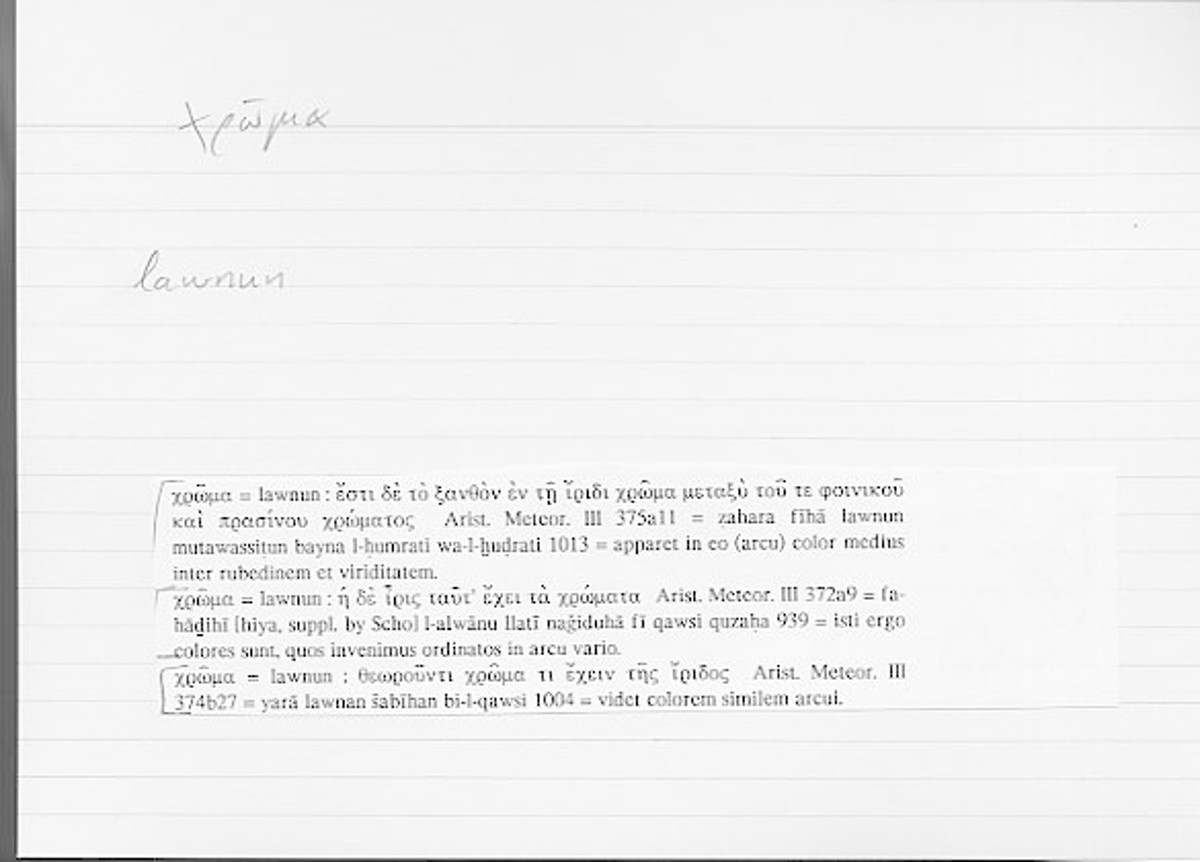 χρῶμα
lawnun
χρῶμα = lawnun : ἔστι δὲ τὸ ξανθὸν ἐν τῇ ἴριδι χρῶμα μεταξὺ τοῦ τε φοινικοῦ
καὶ πρασίνου χρώματος Arist. Meteor. III 375a11 = zahara fīhā lawnun
mutawassiṭun bayna l-ḥumrati wa-l-ḫuḍrati 1013 = apparet in eo (arcu) color medius
inter rubedinem et viriditatem.
χρῶμα = lawnun : ἡ δὲ ἶρις ταῦτ' ἔχει τὰ χρώματα Arist. Meteor. III 372a9 = fa-
hāḏihī [hiya, suppl. by Scho] l-alwānu llatī naǧiduhā fī qawsi quzaḥa 939 = isti ergo
colores sunt, quos invenimus ordinatos in arcu vario.
χρῶμα = lawnun : θεωροῦντι χρῶμα τι ἔχειν τῆς ἴριδος Arist. Meteor. III
374b27 = yarā lawnan šabīhan bi-l-qawsi 1004 = videt colorem similem arcui.